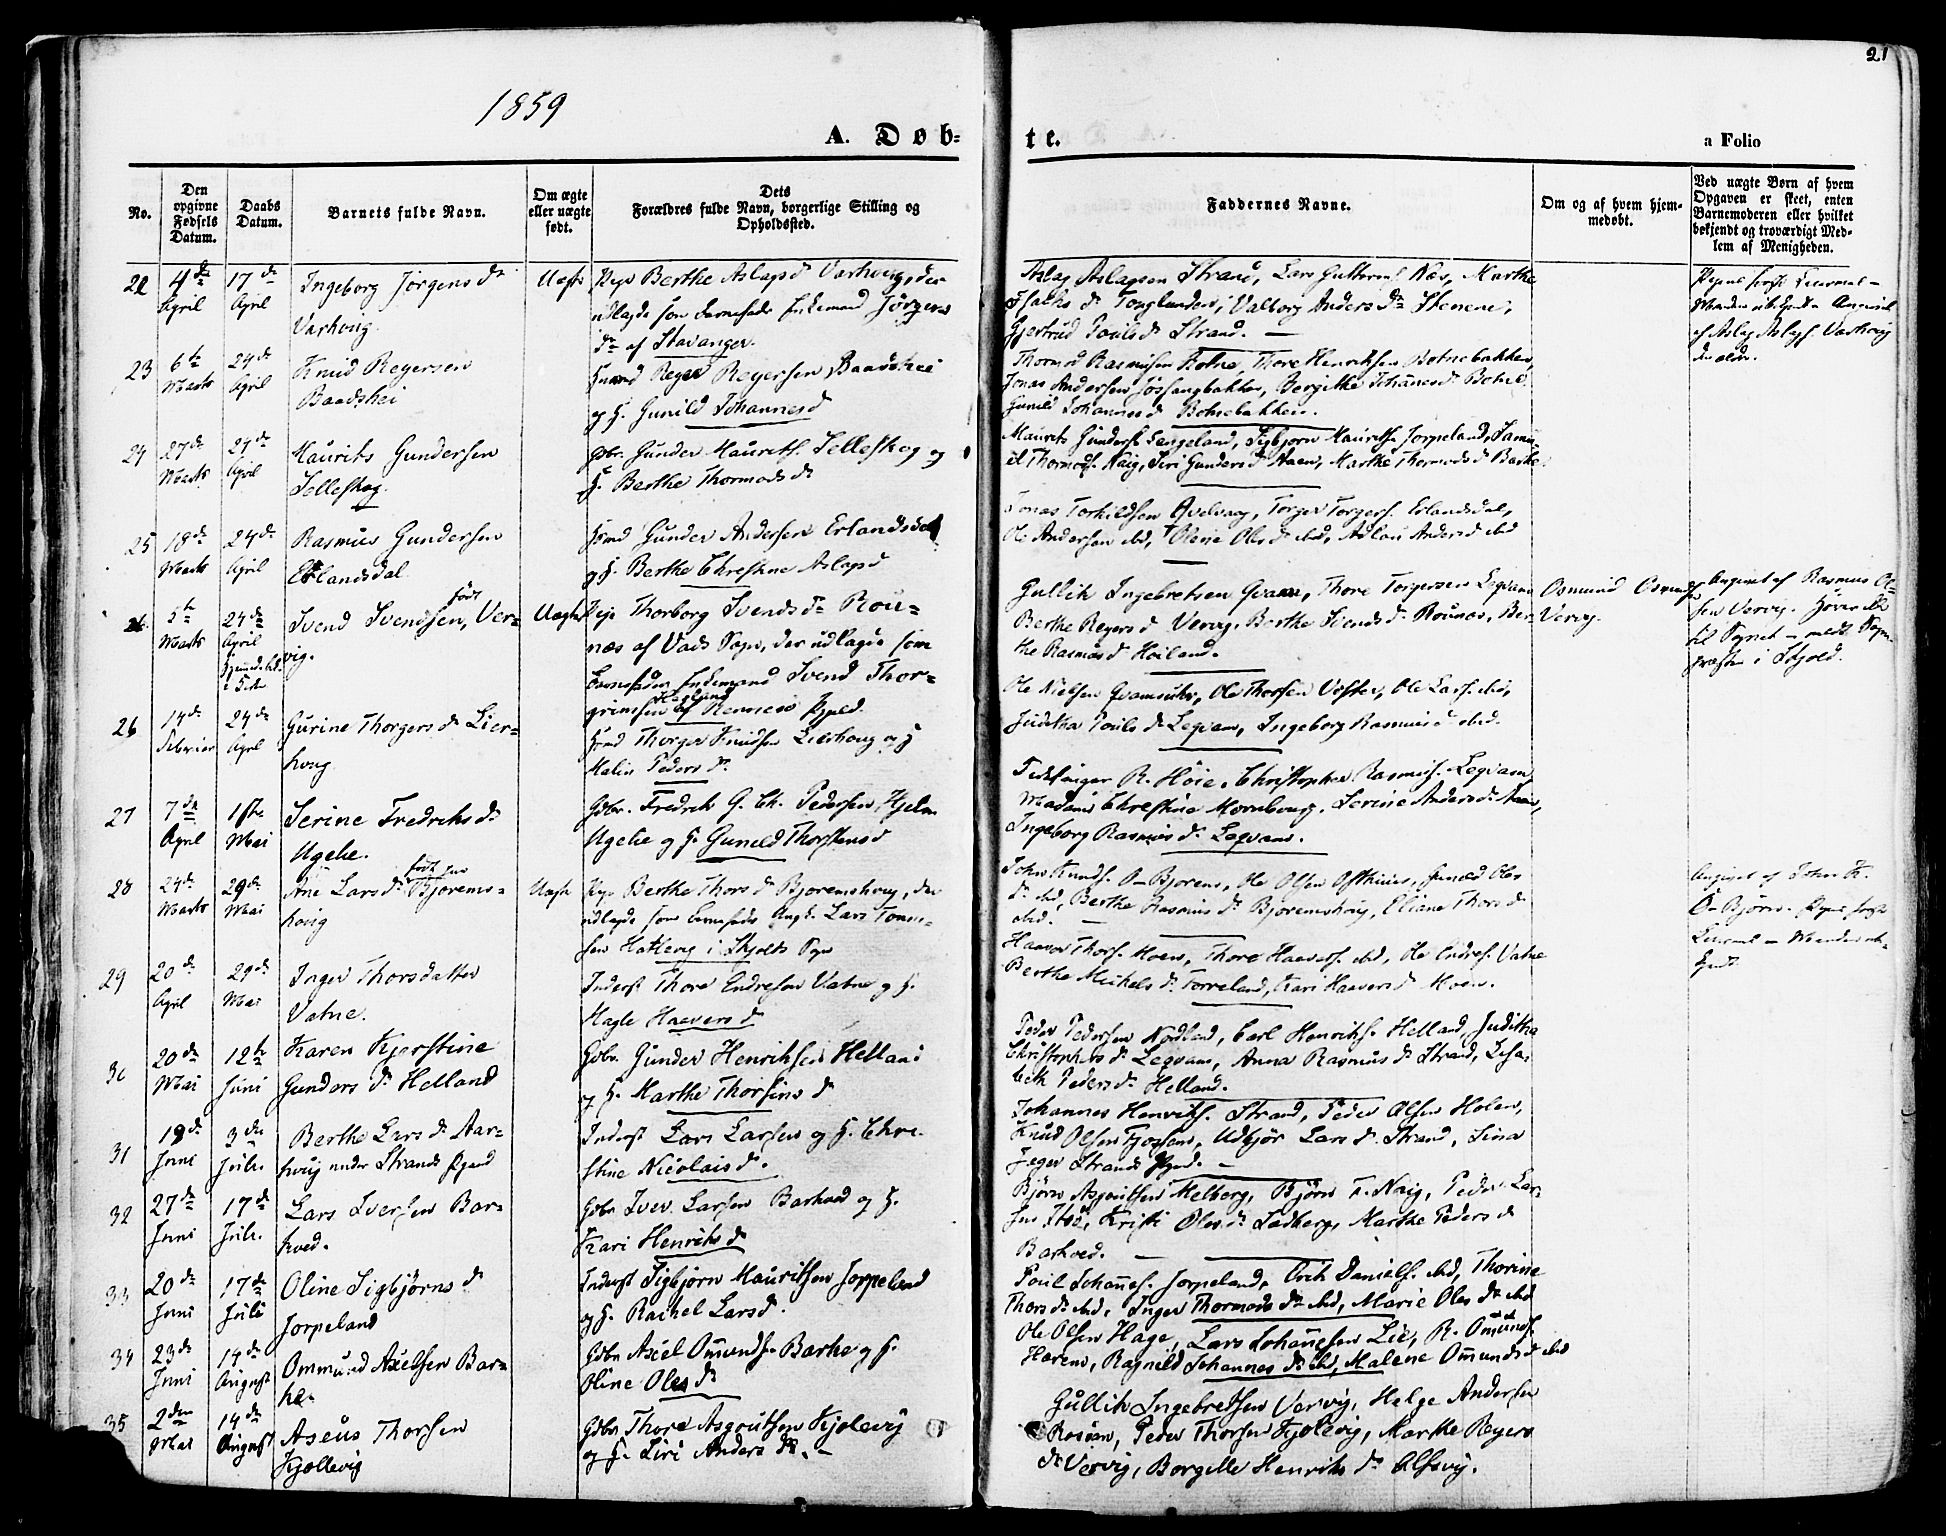 21
1859
A. Døb-
te.
a Folio
No.
Den opgivne Fødsels Datum.
Daabs Datum.
Barnets fulde Navn.
Om ægte eller uægte født.
Dets Forældres fulde Navn, borgerlige Stilling og Opholdssted.
Faddernes Navne.
Om og af hvem hjemmedøbt.
Ved uægte Børn af hvem Opgaven er skeet, enten Barnemoderen eller hvilket bekjendt og troværdigt Medlem af Menigheden.
22 4de April 17de April Ingeborg Jørgensdr Varhoug Uægte
Pige Berthe Aslagsdr Varhoug, der
udlagde som barnefader Enkemand Jørgen
af Stavanger.
Aslag Aslagsen Strand, Lars Guttorms Næs, Marthe
dr Tonglanden, Valborg Andersdr Stenene,
Gjertrud Poulsdr Strand.
af Aslag Aslags. Varhoug
23 6te Marts 24de April Knud Regersen Baadshei
Reger Regersen Baadshei
og H. Gunild Johannesd
Thormod Rasmusen Botne, Thore Henriksen Botnebakken,
Jonas Andersen Jøssangbakken, Bergithe Johannesd Botne
Gunild Johannesd Botnebakken.
24 27de Marts 24de April Maurits Gundersen Selleskog.
Gdbr. Gunder Maurits. Selleskog og
H. Berthe Thormodsdr
Maurits Gunders. Longeland, Sigbjørn Maurits. Jørpeland, Samu-
el Thormods. Naig, Siri Gundersd Naen, Marthe Thormodsd Barke
25 18de Marts 24de April Rasmus Gundersen Erlandsdal
Hsmd Gunder Andersen Erlandsdal
og H. Berthe Christine Aslagsd
Jonas Torkildsen Qvelvaag, Torger Torgers. Erlandsdal,
Ole Andersen ibd, Olene Olesd ibd, Andersd ibd
5te Marts 24de April Svend Svendsen, født Vervig. Uægte
Pige Thorborg Svendsdr Rou-
næs af Vads Sogn, der udlagde som
barnefader Enkemand Svend Thor-
grimsen Hagland af Rennesø Pgjeld.
Gullik Ingebretsen Qvam, Thore Torgersen Leqvam
Berthe Regersd Vervig, Berthe Svendsd Rounæs, Ber-
the Rasmusd Høiland.
Osmund Osmundsen
Vervig.
Angivet af Rasmus Ol-
sen Vervig. Hører ikke
til Sognet – meldt Sogne-
præsten i Skjold.
26 14de Februar 24de April Gurine Thorgersdr Lier-
houg
Hsmd Thorger Knudsen Lierhoug og H
Malin Pedersdr
Ole Nielsen Qvamsukr, Ole Thorsen Voster, Ole Lars. ibd,
Juditha Poulsdr Leqvam, Ingeborg Rasmusd ibd.
27 7de April 1ste Mai Serine Fredriksdr
Ugelie.
Gdbr. Fredrik G. Ch. Pedersen Hjelm
Ugelie og H. Gunild Thorstensd
R. Høie, Christopher Rasmus. Leqvam,
Madame Christine Mornbourg, Serine Andersdr Naæn,
Ingeborg Rasmusdr Leqvam.
28 24de Marts 29de Mai Ane Larsdr født paa Bjørems-
houg Uægte
Pige Berthe Thorsdr Bjøremshoug, der
udlagde som barnefader Ungk. Lars Tønne-
sen Hatlevig i Skjolds Sogn
John Knuds. Ø-Bjørem, Ole Olsen Østhuus, Gunild Oles
dr ibd, Berthe Rasmusdr Bjøremshoug, Eliane Thorsdr
ibd.
Angivet af John K.
Ø-Bjørem.
29 20de April 29de Mai Inger Thorsdatter
Vatne.
Inderst Thore Endresen Vatne og H.
Magle Haaversd
Haaver Thors. Moen, Thore Haavers. ibd, Ole Endres. Vatne
Berthe Mikkelsdr Torreland, Kari Haaversdr Moen.
30 20de Mai 12te Juni Karen Kjerstine
Gundersdr Helland
Gdbr. Gunder Henriksen Helland
og H. Marthe Thorsensdr
Peder Pedersen Nordland, Carl Henriks. Helland, Juditha
Christophersdr Leqvam, Anna Rasmusdr Strand, Lisa-
beth Pedersdr Helland.
31 19de Juni 3die Juli Berthe Larsdr Aar-
houg under Strands Pgaard
Inderst Lars Larsen og H. Chri-
stine Nicolaisdr.
Johannes Henriks. Strand, Peder Olsen Holen,
Knud Olsen Fjøssen, Udbjør Larsdr Strand, Sina
Jeger Strands Pgrd.
32 27de Juni 17de Juli Lars Iversen Bar-
kved.
Gdbr Iver Larsen Barkved og H.
Kari Henriksd
Bjørn Asgoutsen Melberg, Bjørn T. Naig, Peder Lar-
sen Idsø, Kristi Olesdr Ladberg, Marthe Pedersdr
Barkved.
33 20de Juni 17de Juli Oline Sigbjørnsdr
Jørpeland
Inderst Sigbjørn Mauritsen Jørpeland
og H. Rachel Larsd.
Poul Johannes. Jørpeland, Erik Daniels. ibd, Thorine
Thorsdr ibd, Inger Thormodsdr ibd, Marie Olesdr ibd
34 23de Juni 14de August Ommund Axelsen Bar-
ke.
Gdbr Axel Ommunds. Barke og H.
Oline Olesdr
Ole Olsen Hage, Lars Johannesen Lie, R. Ommunds.
Haren, Ragnild Johannesdr ibd, Malene Ommundsd ibd
35 2den Mai 14de August Aseus Thorsen
Kjøllevig
Gdbr Thore Asgoutsen Kjølevig
og H. Siri Andersdr.
Gullik Ingebretsen Vervig, Helge Andersen
Rosaæn, Peder Thorsen Kjølevig, Marthe Regers
dr Vervig, Borgille Henriksdr Alsvig.